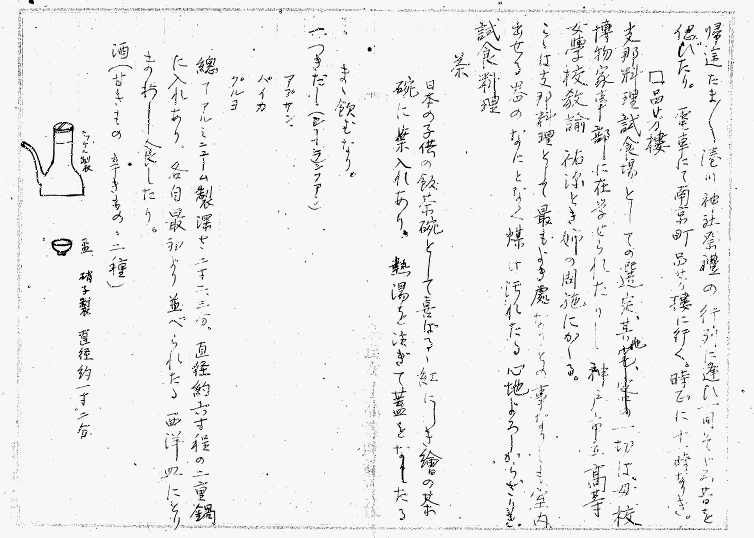 帰途たま〱湊川神社祭禮の行列に逢ひ一同そゞろ昔を
偲びたり。電車にて南京町品芳樓に行く。時正に十時なりき。
品芳樓
支那料理試食場としての選定、其他、一切は、母校
博物家事部に在学せられたりし神戸市立高等
女學校教諭 祐源とき姉の周旋にかゝる。
こゝは支那料理として最もよき處なりとの事なりしも室内
出せる器のなにとなく煤け汚れたる心地よろしからざりき。
試食料理
茶
日本の子供の飯茶碗として喜ばるゝ紅にしき繪の茶
碗に葉入れあり。熱湯を注ぎて蓋をなしたる
まゝ飲むなり。
一、つきだし
アプサン
パイカ
グルヨ
總てアルミニユーム製深さ二寸二三分。直径約六寸程の二重鍋
に入れあり。各自最初より並べられたる西洋皿にとり
もの招し食したり。
酒(甘きもの 辛きもの、二種)
製
盃 硝子製 直径約一寸二分